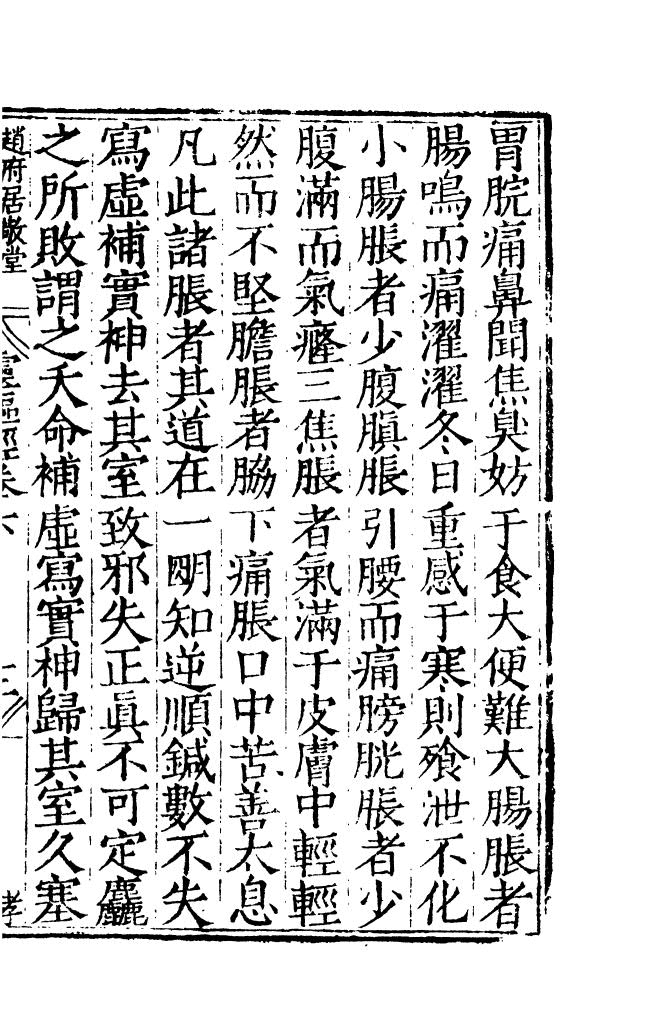 胃脘痛鼻聞焦臭妨于食大便難大腸脹者
腸鳴而痛濯濯冬日重感于寒則飱泄不化
小腸脹者少腹䐜脹引腰而痛膀胱脹者少
腹滿而氣癃三焦脹者氣滿于皮膚中輕輕
然而不堅膽脹者脇下痛脹口中苦善太息
凡此諸脹者其道在一明知逆順鍼數不失
寫虛補實神去其室致邪失正眞不可定麤
之所敗謂之夭命補虛寫實神歸其室久塞
趙府居敬堂